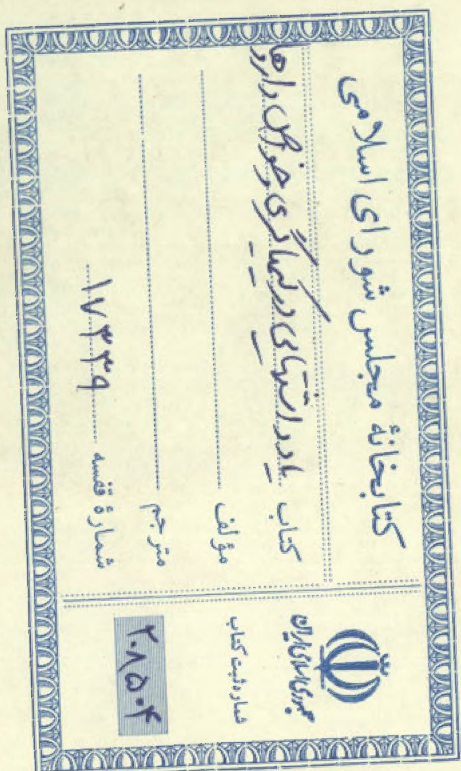 کتابخانهٔ مجلس شورای اسلامی
کتاب یادداشتهایی در کیمیاگری و خواص داروها
مؤلف
مترجم
شمارهٔ قفسه ۱۷۳۳۹
جمهوری اسلامی ایران
شماره ثبت کتاب
۲۰۸۵۰۴